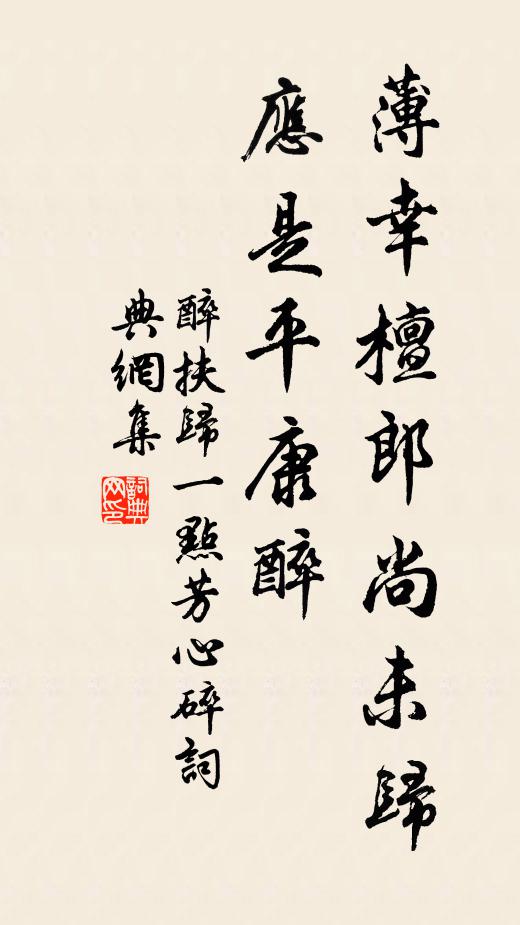 薄幸檀郎尚未歸
應是平康醉
醉扶歸一點芳心碎詞
典網集
詞典网印